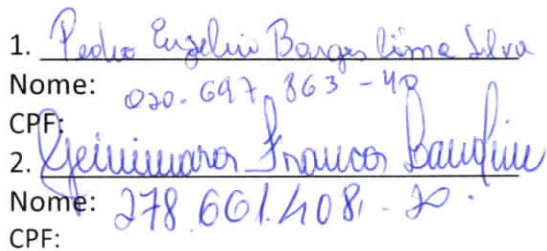 1. Pedro Eugelio Borges Lima Silva
Nome: 020.697.863-40
CPF:
2. Geinimara Franco
Nome: 278.661.408-20.
CPF: